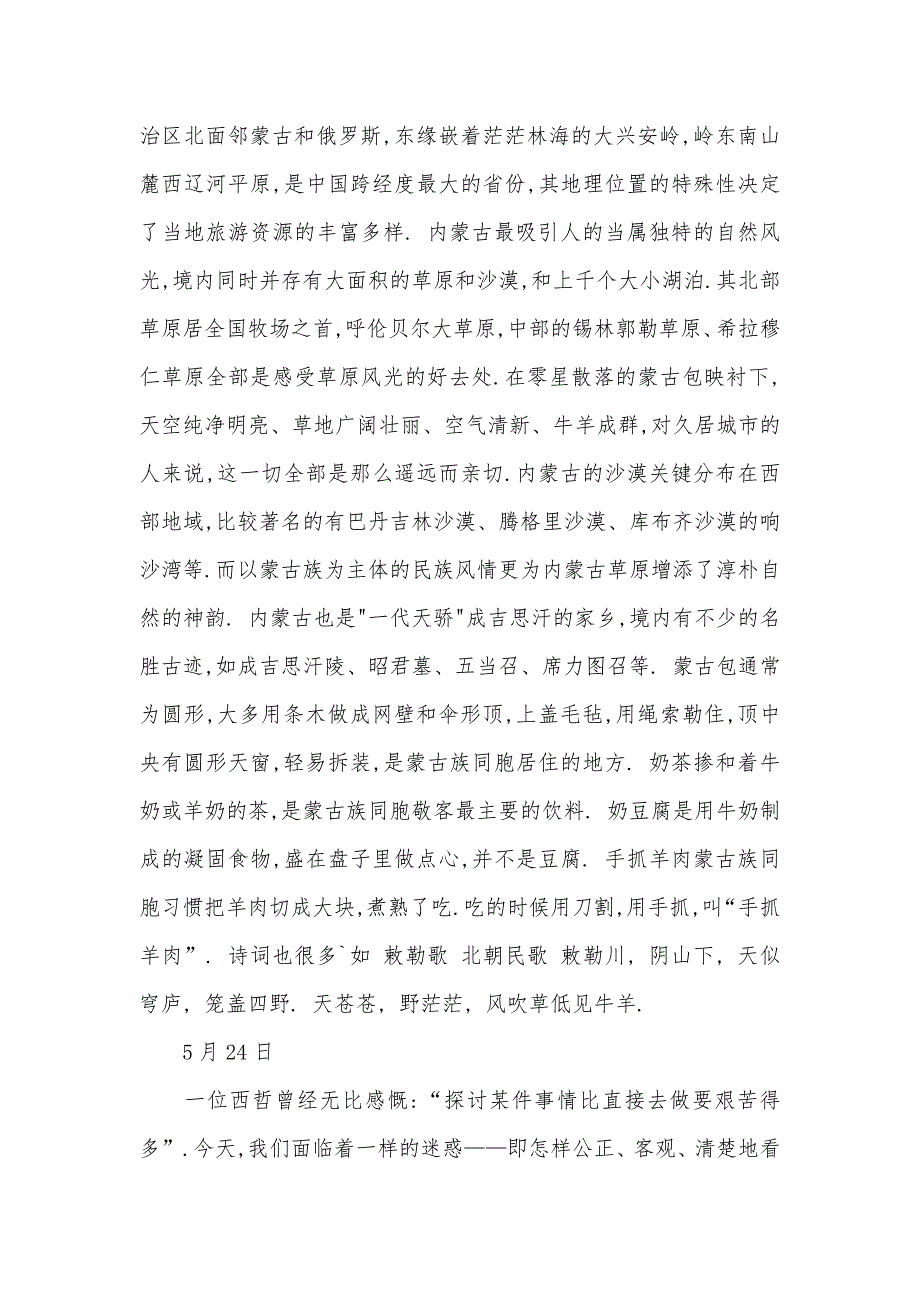 治区北面邻蒙古和俄罗斯,东缘嵌着茫茫林海的大兴安岭,岭东南山
麓西辽河平原,是中国跨经度最大的省份,其地理位置的特殊性决定
了当地旅游资源的丰富多样. 内蒙古最吸引人的当属独特的自然风
光,境内同时并存有大面积的草原和沙漠,和上千个大小湖泊.其北部
草原居全国牧场之首,呼伦贝尔大草原,中部的锡林郭勒草原、希拉穆
仁草原全部是感受草原风光的好去处.在零星散落的蒙古包映衬下,
天空纯净明亮、草地广阔壮丽、空气清新、牛羊成群,对久居城市的
人来说,这一切全部是那么遥远而亲切.内蒙古的沙漠关键分布在西
部地域,比较著名的有巴丹吉林沙漠、腾格里沙漠、库布齐沙漠的响
沙湾等.而以蒙古族为主体的民族风情更为内蒙古草原增添了淳朴自
然的神韵. 内蒙古也是"一代天骄"成吉思汗的家乡,境内有不少的名
胜古迹,如成吉思汗陵、昭君墓、五当召、席力图召等. 蒙古包通常
为圆形,大多用条木做成网壁和伞形顶,上盖毛毡,用绳索勒住,顶中
央有圆形天窗,轻易拆装,是蒙古族同胞居住的地方. 奶茶掺和着牛
奶或羊奶的茶,是蒙古族同胞敬客最主要的饮料. 奶豆腐是用牛奶制
成的凝固食物,盛在盘子里做点心,并不是豆腐. 手抓羊肉蒙古族同
胞习惯把羊肉切成大块,煮熟了吃.吃的时候用刀割,用手抓,叫“手抓
羊肉”. 诗词也很多`如 敕勒歌 北朝民歌 敕勒川, 阴山下, 天似
穹庐, 笼盖四野. 天苍苍, 野茫茫, 风吹草低见牛羊.
5月24日
一位西哲曾经无比感慨:“探讨某件事情比直接去做要艰苦得
多”.今天,我们面临着一样的迷惑——即怎样公正、客观、清楚地看